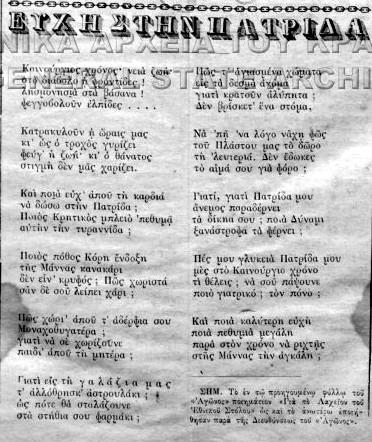 ΕΥΧΗ ΣΤΗΝ ΠΑΤΡΙΔΑ
ΝΙΚΑ ΑΡΧΕΙΑ ΤΟΥ ΚΡΑ
GENERAL STATE ARCHI
Καινούργιος χρόνος· γειὰ ζωὴ
στὸ διάβολο ἡ φροντίδες!
λησμονησιὰ στὰ βάσανα!
φεγγοβολοῦν ἐλπίδες ....
Κατρακυλοῦν ἡ ὥραις μας
κι' ὡς ὁ τροχὸς γυρίζει
φεύγ' ἡ ζωή· κι ὁ θάνατος
στιγμὴ δὲν μᾶς χαρίζει.
Καὶ ποιὰ εὐχ' ἀποῦ τὴ καρδιὰ
νὰ δώσω στὴν Πατρίδα;
Ποιὸς Κρητικὸς μπλειὸ 'πεθυμᾷ
αὐτὴν τὴν τυραννίδα;
Ποιὸς πόθος Κόρη ἔνδοξη
τῆς Μάννας κανακάρι
δὲν εἶν' κρυφός; Πῶς χωριστὰ
σὰν δὲ σοῦ λείπει χάρι;
Πῶς χώρι' ἀποῦ τ' ἀδέρφια σου
Μοναχοθυγατέρα;
γιατὶ νὰ σὲ χωρίζουνε
παιδι' ἀποῦ τὴ μητέρα;
Γιατὶ εἰς τὴ γαλάζια μας
τ' ἀλλόθρησκ' ἀστρουλάκι;
ὡς πότε θὰ σταλάζουνε
στὰ στήθια σου φαρμάκι;
Πῶς τ' ἁγιασμένα χώματα
εἰς τὰ δεσμὰ ἀκόμα
γιατὶ κρατοῦν ἀλύπητα;
Δὲν βρίσκετ' ἕνα στόμα,
Νὰ 'πῇ 'να λόγο νἄχῃ φῶς
τοῦ Πλάστου μας τὸ δῶρο
τὴ 'λευτεριά. Δὲν ἔδωκες
τὸ αἷμά σου γιὰ φόρο;
Γιατί, γιατὶ Πατρίδα μου
ἄνεμος παραδέρνει
τὰ δίκῃα σου; ποιὰ Δύναμι
ξανάστροφα τὰ φέρνει;
Πές μου γλυκειὰ Πατρίδα μου
μὲς στὸ Καινούργιο χρόνο
τί θέλεις; νὰ σοῦ πάψουνε
ποιὸ γιατρικό; τὸν πόνο;
Καὶ ποιὰ καλύτερη εὐχὴ
ποιὰ πεθυμιὰ μεγάλη
παρὰ στὸν χρόνο νὰ ριχτῇς
στῆς Μάννας τὴν ἀγκάλη;
ΣΗΜ. Τὸ ἐν τῷ προηγουμένῳ φύλλῳ τοῦ
«'Αγῶνος» ποιημάτιον «Γιὰ τὸ Λαχεῖον τοῦ
'Εθνικοῦ Στόλου» ὡς καὶ τὸ ἀνωτέρω ἐποιή-
θησαν παρὰ τῆς Διευθύνσεως τοῦ «'Αγῶνος».